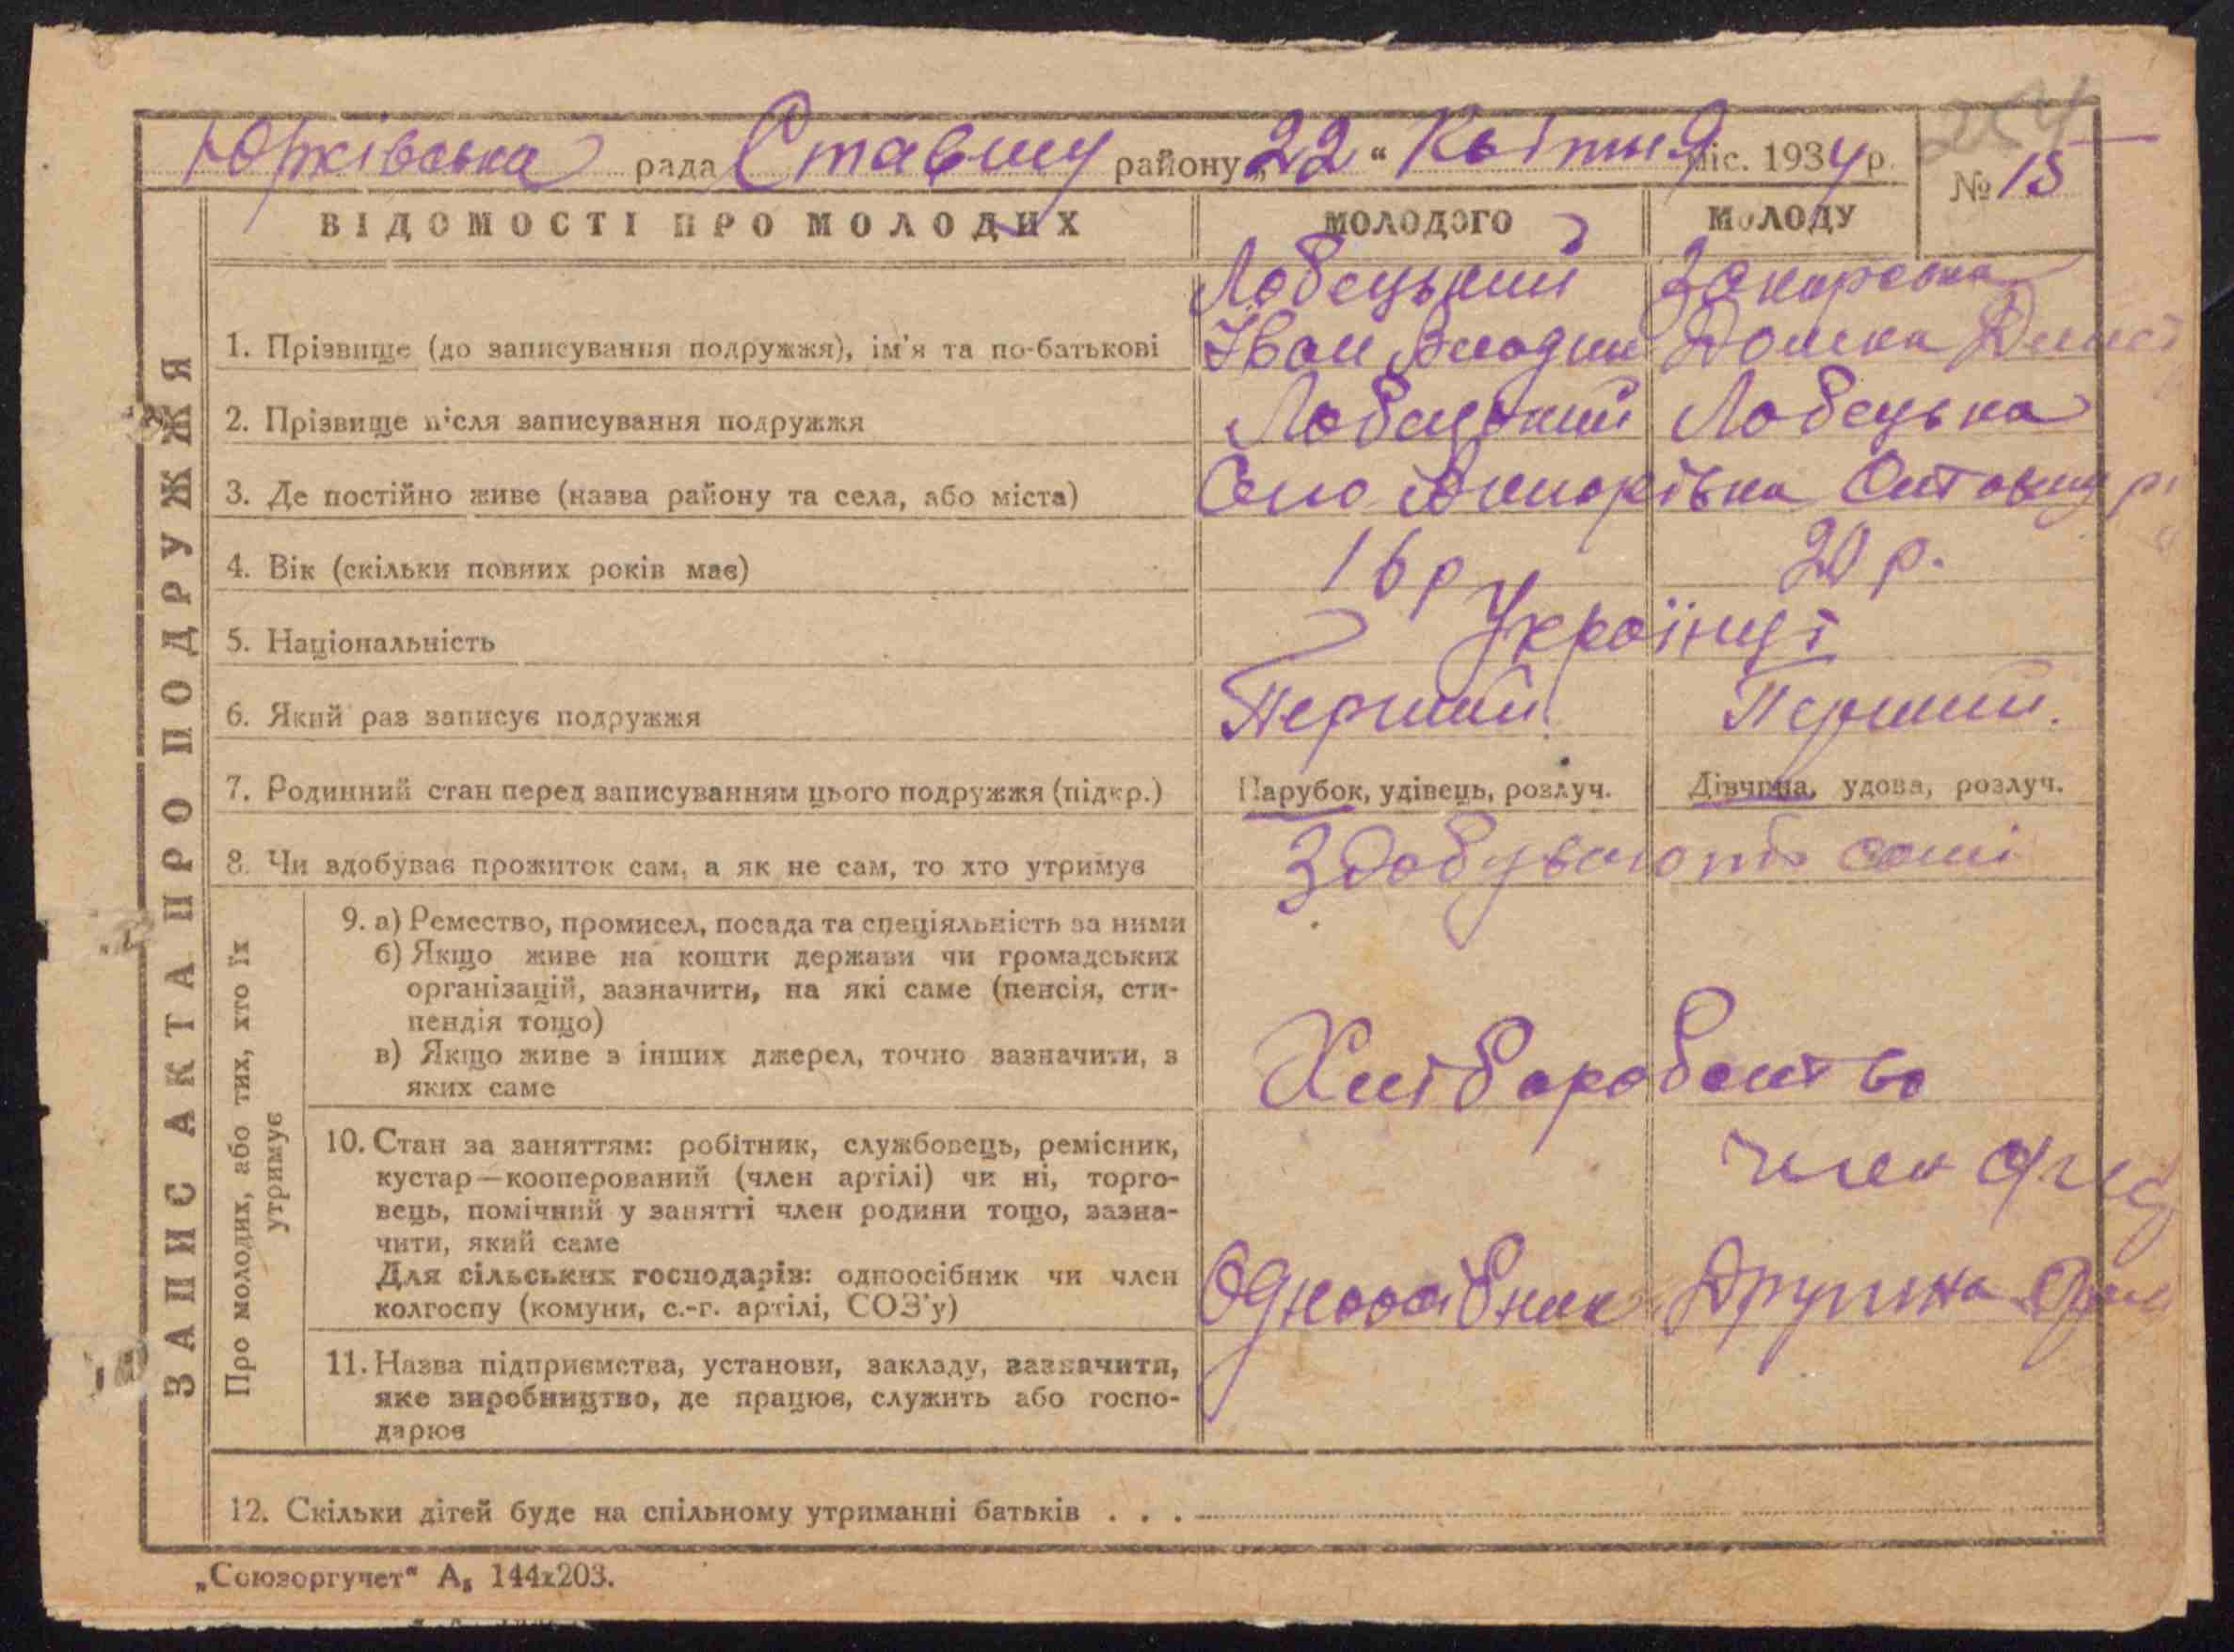 Юрківська рада Ставищ району „22“ Квітня міс. 1934 р.
№ 15
ЗАПИС АКТА ПРО ПОДРУЖЖЯ
ВІДОМОСТІ ПРО МОЛОДИХ МОЛОДОГО МОЛОДУ
1. Прізвище (до записування подружжя), ім'я та по-батькові
Лобецький
Іван
Домка
2. Прізвище після записування подружжя Лобецький Лобецька
3. Де постійно живе (назва району та села, або міста) Село
4. Вік (скільки повних років має) 16 р 20 р.
5. Національність Українці
6. Який раз записує подружжя Перший Перший.
7. Родинний стан перед записуванням цього подружжя (підкр.) Парубок, удівець, розлуч. Дівчина, удова, розлуч.
8. Чи здобуває прожиток сам, а як не сам, то хто утримує Здобувають самі
Про молодих, або тих, хто їх
утримує
9. а) Ремество, промисел, посада та спеціяльність за ними
б) Якщо живе на кошти держави чи громадських
організацій, зазначити, на які саме (пенсія, сти-
пендія тощо)
в) Якщо живе з інших джерел, точно зазначити, з
яких саме
Хліборобство
10. Стан за заняттям: робітник, службовець, ремісник,
кустар—кооперований (член артілі) чи ні, торго-
вець, помічний у занятті член родини тощо, зазна-
чити, який саме
Для сільських господарів: одноосібник чи член
колгоспу (комуни, с.-г. артілі, СОЗ'у)
член
Одноосібник Дружина
11. Назва підприємства, установи, закладу, зазначити,
яке виробництво, де працює, служить або госпо-
дарює
12. Скільки дітей буде на спільному утриманні батьків . . .
„Союзоргучет“ А₅ 144х203.